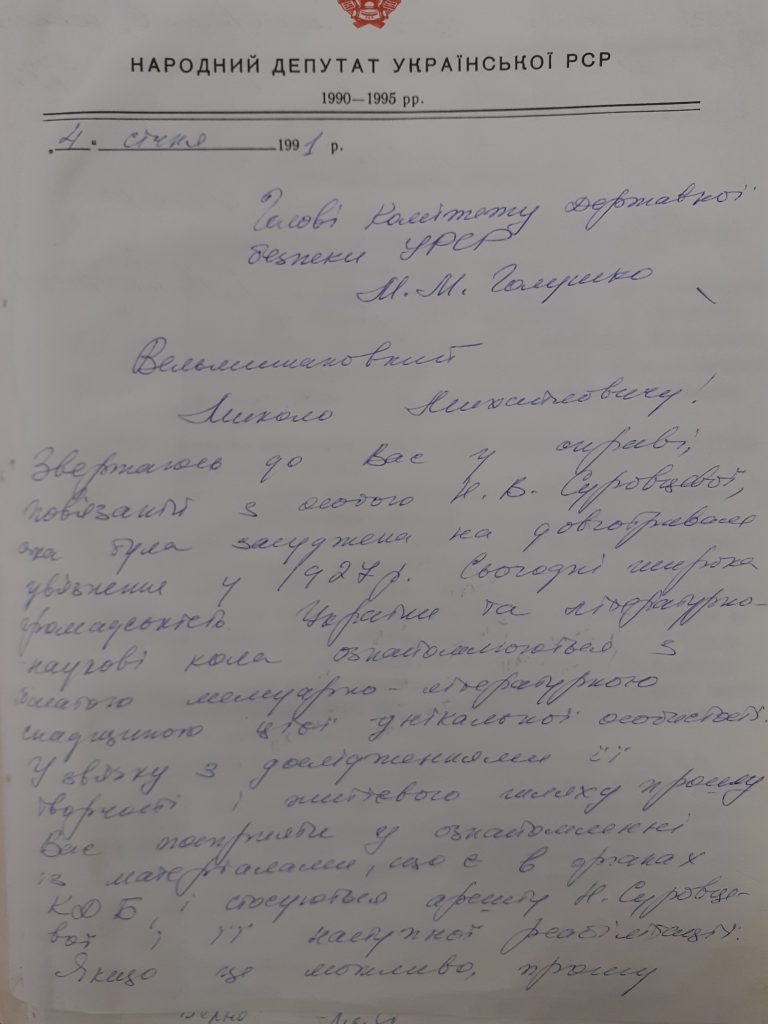 НАРОДНИЙ ДЕПУТАТ УКРАЇНСЬКОЇ РСР
1990—1995 рр.
„4“ січня 1991 р.
Голові Комітету Державної
безпеки УРСР
М. М. Голушко
Вельмишановний
Миколо Михайловичу!
Звертаюсь до Вас у справі,
пов'язаній з особою Н. В. Суровцової,
яка була засуджена на довготривале
ув'язнення у 1927 р. Сьогодні широка
громадськість України та літературно-
наукові кола ознайомлюються з
багатою мемуарно-літературною
спадщиною цієї унікальної особистості.
У зв'язку з дослідженнями її
творчості і життєвого шляху прошу
Вас посприяти у ознайомленні
із матеріалами, що є в органах
КДБ, і стосуються арешту Н. Суровцо-
вої і її наступної реабілітації.
Якщо це можливо, прошу